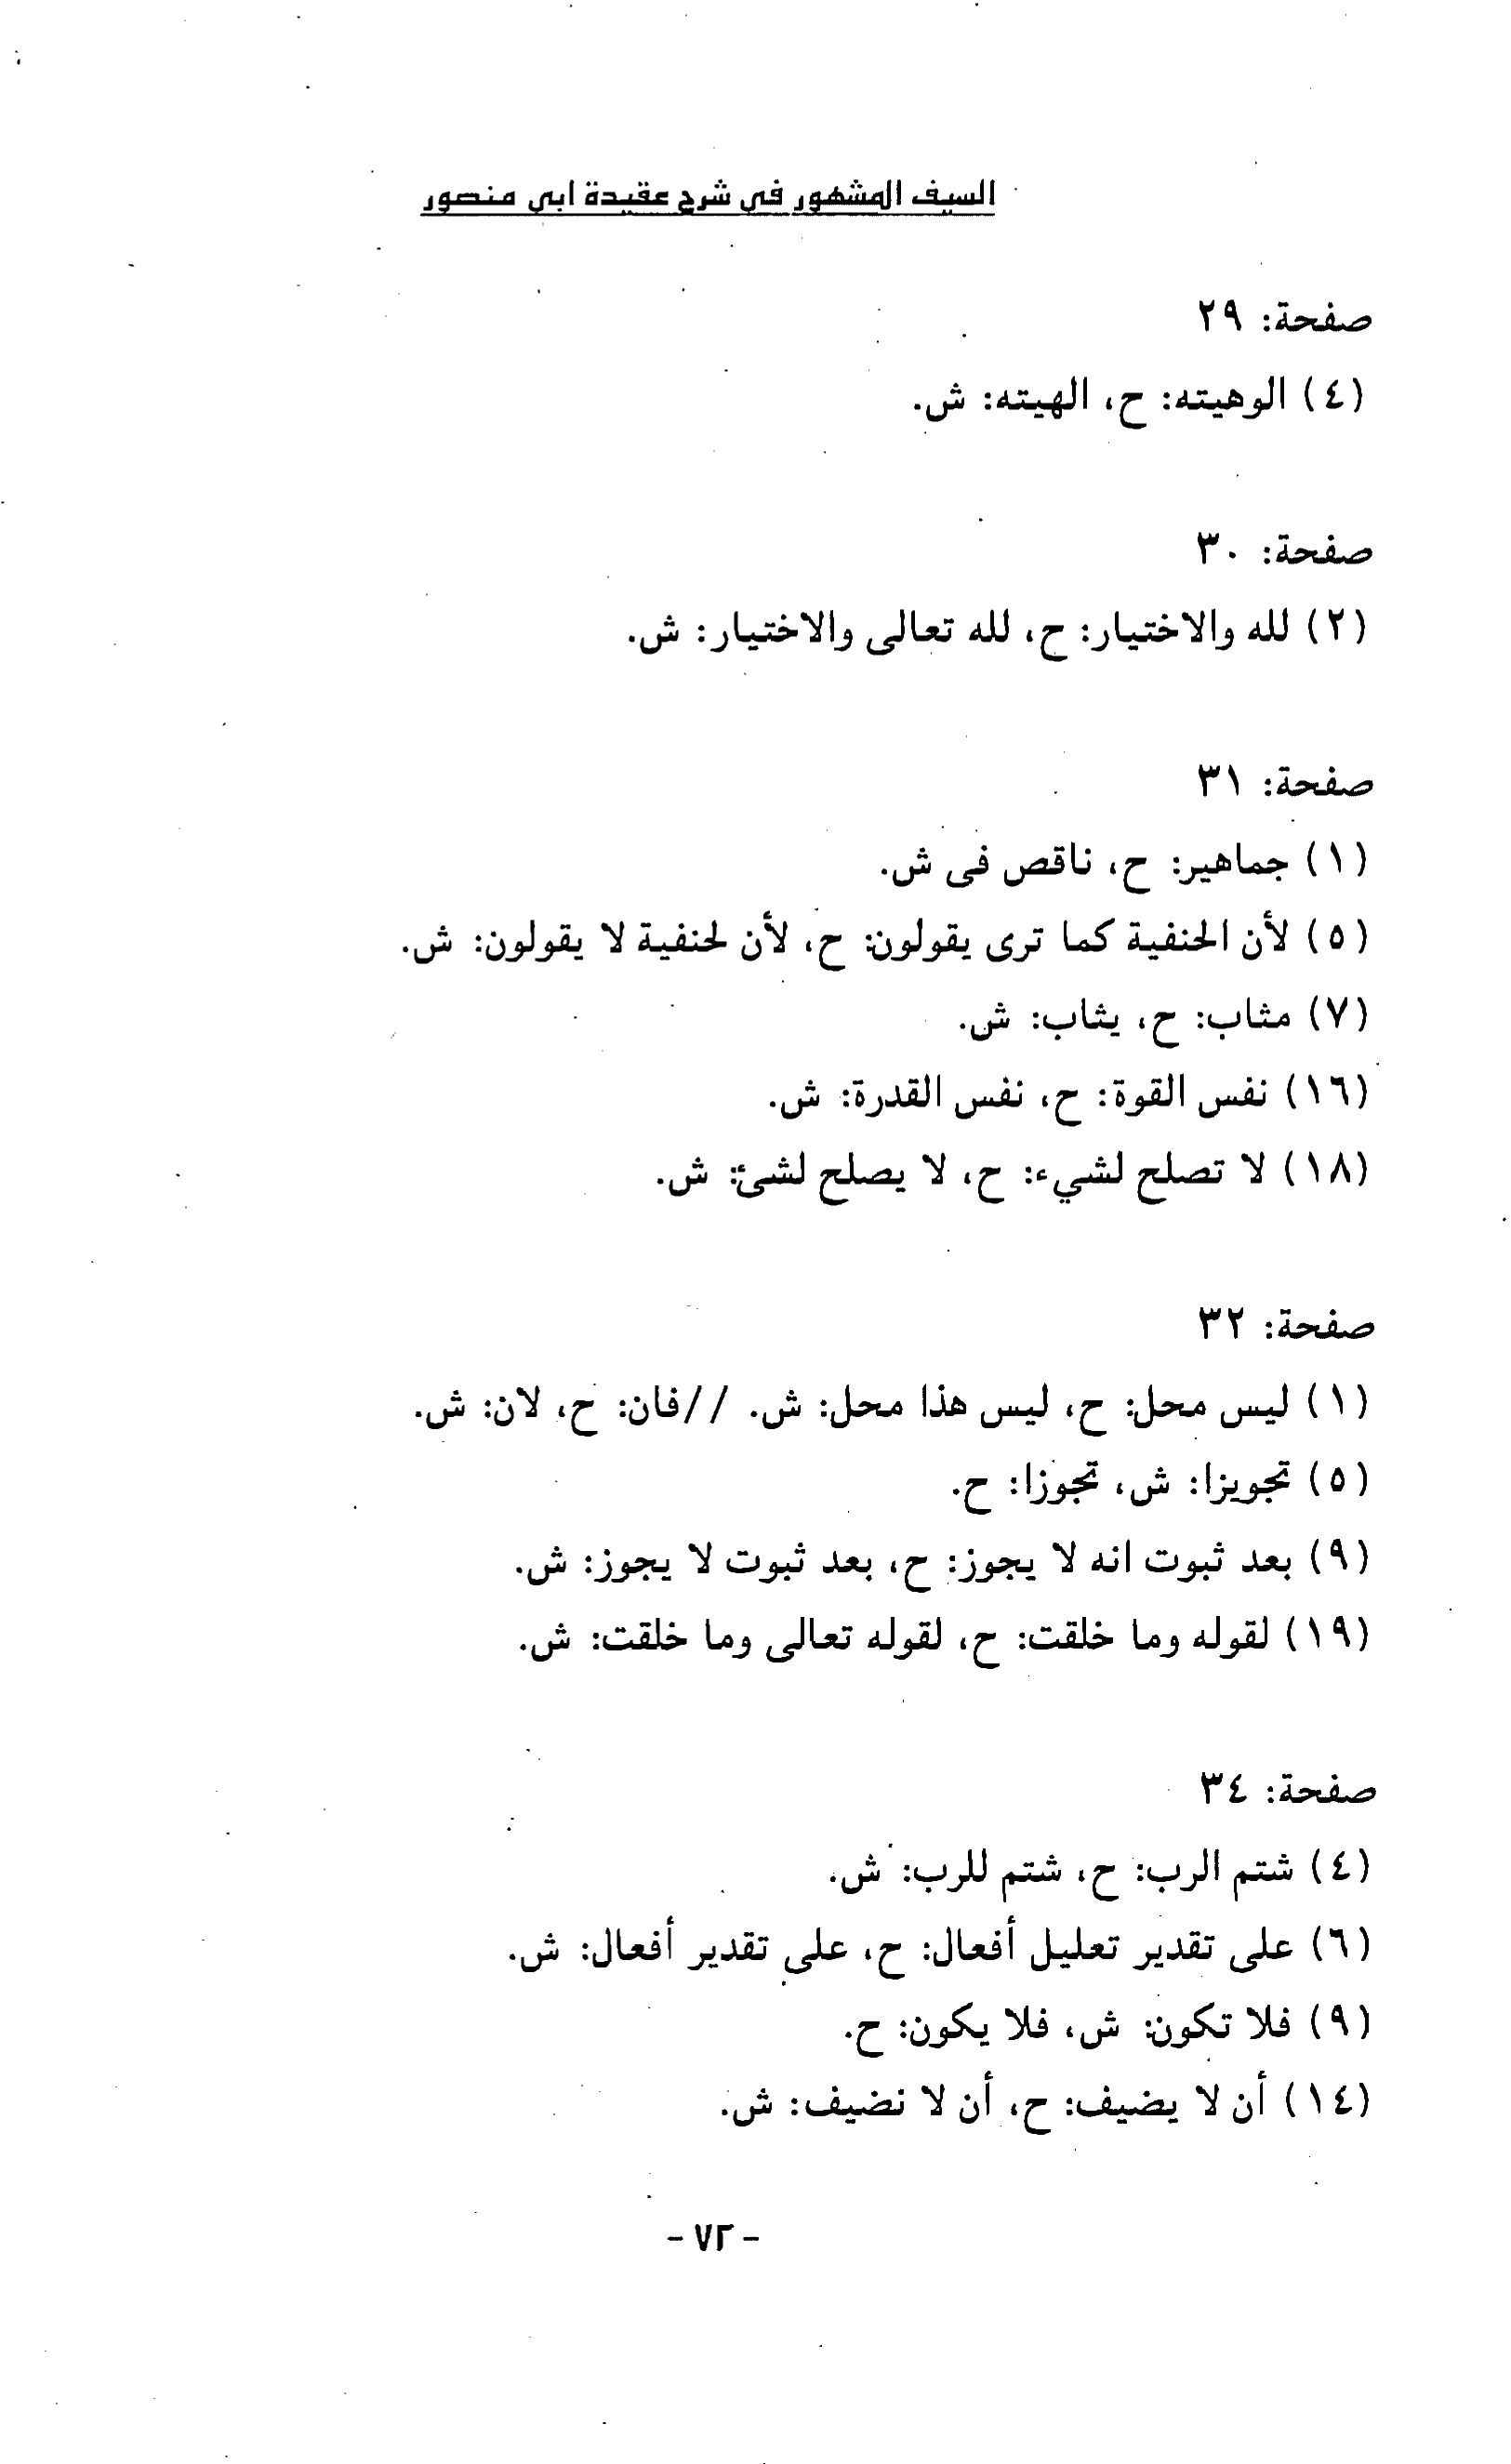 السيف المشهور في شرح عقيدة ابي منصور
صفحة: ٢٩
(٤) الوهيته: ح، الهيته: ش.
صفحة: ٣٠
(٢) لله والاختيار: ح، لله تعالى والاختيار: ش.
صفحة: ٣١
(١) جماهير: ح، ناقص فى ش.
(٥) لأن الحنفية كما ترى يقولون: ح، لأن لحنفية لا يقولون: ش.
(٧) مثاب: ح، يثاب: ش.
(١٦) نفس القوة: ح، نفس القدرة: ش.
(١٨) لا تصلح لشيء: ح، لا يصلح لشئ: ش.
صفحة: ٣٢
(١) ليس محل: ح، ليس هذا محل: ش. //فان: ح، لان: ش.
(٥) تجويزا: ش، تجوزا: ح.
(٩) بعد ثبوت انه لا يجوز: ح، بعد ثبوت لا يجوز: ش.
(١٩) لقوله وما خلقت: ح، لقوله تعالى وما خلقت: ش.
صفحة: ٣٤
(٤) شتم الرب: ح، شتم للرب: ش.
(٦) على تقدير تعليل أفعال: ح، على تقدير أفعال: ش.
(٩) فلا تكون: ش، فلا يكون: ح.
(١٤) أن لا يضيف: ح، أن لا نضيف: ش.
- ٧٢ -